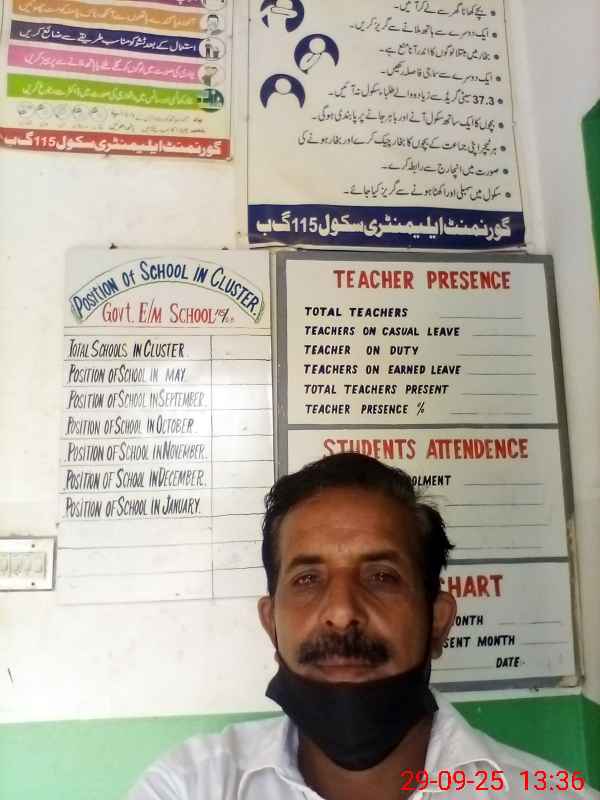 استعمال کے بعد ٹشو کو مناسب طریقے سے ضائع کریں
گورنمنٹ ایلیمنٹری سکول 115 گ ب
بچے کھانا گھر سے لے کر آئیں۔
ایک دوسرے سے ہاتھ ملانے سے گریز کریں۔
بخار میں مبتلا لوگوں کا اندر آنا منع ہے۔
ایک دوسرے سے سماجی فاصلہ رکھیں۔
37.3 سینٹی گریڈ سے زیادہ والے طلباء سکول نہ آئیں۔
بچوں کا ایک ساتھ سکول آنے اور باہر جانے پر پابندی ہوگی۔
ہر ٹیچر اپنی جماعت کے بچوں کا بخار چیک کرے اور بخار ہونے کی
صورت میں انچارج سے رابطہ کرے۔
سکول میں اسمبلی اور اکٹھا ہونے سے گریز کیا جائے۔
گورنمنٹ ایلیمنٹری سکول 115 گ ب
POSITION OF SCHOOL IN CLUSTER.
GOVT. E/M SCHOOL
TOTAL SCHOOLS IN CLUSTER.
POSITION OF SCHOOL IN MAY.
POSITION OF SCHOOL IN SEPTEMBER.
POSITION OF SCHOOL IN OCTOBER.
POSITION OF SCHOOL IN NOVEMBER.
POSITION OF SCHOOL IN DECEMBER.
POSITION OF SCHOOL IN JANUARY.
TEACHER PRESENCE
TOTAL TEACHERS
TEACHERS ON CASUAL LEAVE
TEACHER ON DUTY
TEACHERS ON EARNED LEAVE
TOTAL TEACHERS PRESENT
TEACHER PRESENCE %
STUDENTS ATTENDENCE
OLMENT
CHART
ONTH
SENT MONTH
DATE:-
29-09-25 13:36